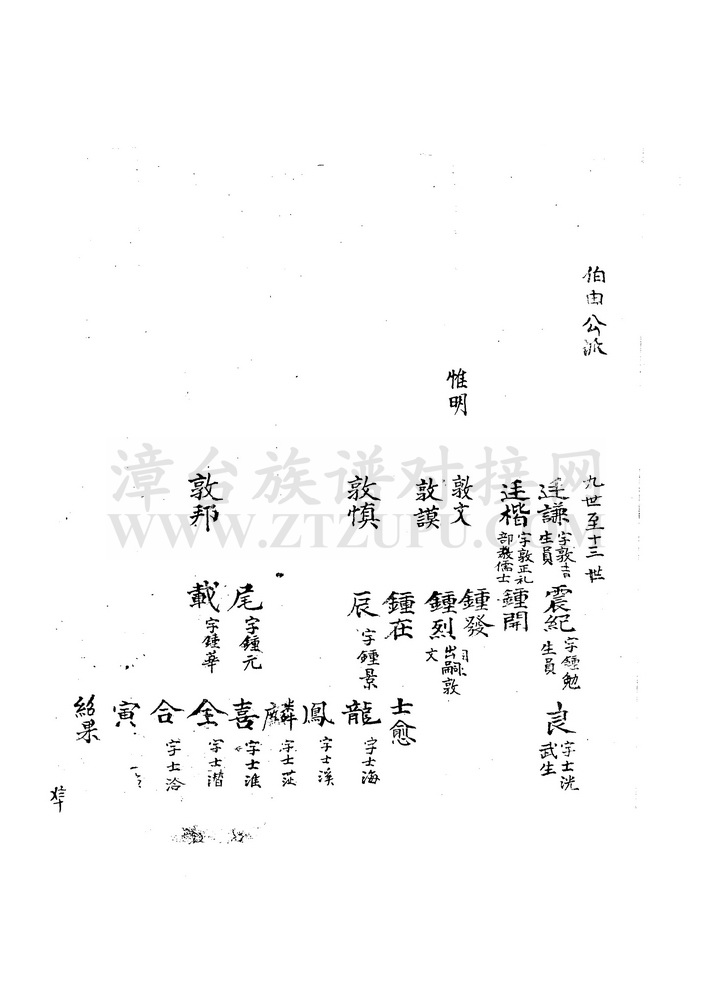 伯由公派
九世至十三世
惟明
廷謙 字敦吉 生員
廷楷 字敦正礼部教儒士
敦文
敦謨
敦慎
敦邦
震紀 字鍾勉 生員
鍾開
鍾發
鍾烈 出嗣敦文
鍾在
辰 字鍾景
尾 字鍾元
載 字鍾華
良 字士洸 武生
士愈
龍 字士海
鳳 字士溪
麟 字士茫
喜 字士淮
全 字士潛
合 字士洽
寅
紹果
漳台族谱对接网
WWW.ZTZUPU.COM